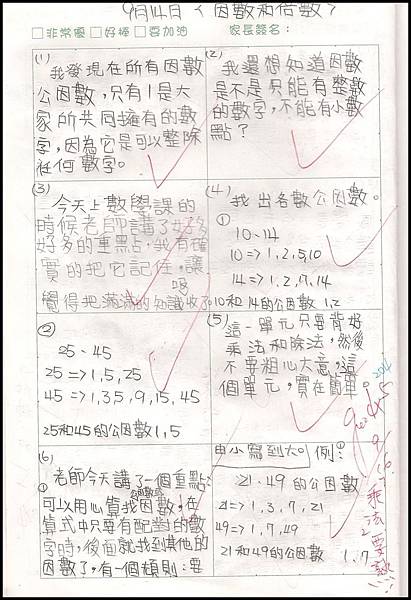 9月14日〈因數和倍數〉
□非常優□好棒□要加油 家長簽名：
(1)
我發現在所有因數
公因數，只有1是大
家所共同擁有的數
字，因為它是可以整除
任何數字。
(2)
我還想知道因數
是不是只能有整數
的數字，不能有小數
點？
(3)
今天上數學課的
時候老師講了好多
好多的重點，我有確
實的把它記住，讓
覺得把滿滿的知識收了
(4) 找出各數公因數。
①
10、14
10=>1,2,5,10
14=>1,2,7,14
10和14的公因數 1,2
②
25、45
25=>1,5,25
45=>1,3,5,9,15,45
25和45的公因數1,5
(5)
這一單元只要背好
乘法和除法，然後
不要粗心大意，這
個單元，實在簡單
(6)
①老師今天講了一個重點：
可以用心算找因數，在
算式中只要有配對的數
字時，後面就找到其他的
因數了，有一個順則：要
由小寫到大。例：①
21、49的公因數
21=>1,3,7,21
49=>1,7,49
21和49的公因數 1,7
乘法要熟